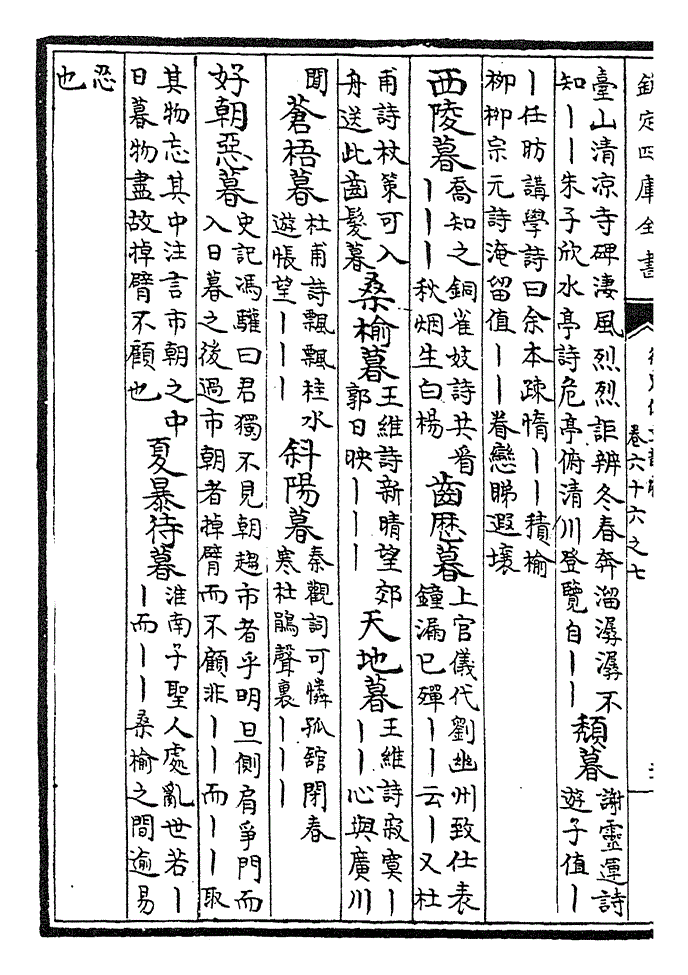 欽定四庫全書
卷六十六之七
臺山清凉寺碑淒風烈烈詎辨冬春奔溜潺潺不
知丨丨朱子欣水亭詩危亭俯清川登覽自丨丨
頹暮
謝靈運詩
遊子值丨
丨任昉講學詩曰余本疎惰丨丨積榆
柳柳宗元詩淹留值丨丨眷戀睇遐壤
西陵暮
喬知之銅雀妓詩共看
丨丨丨秋烟生白楊
齒歷暮
上官儀代劉幽州致仕表
鐘漏已殫丨丨云丨又杜
甫詩杖策可入
舟送此齒髮暮
桑榆暮
王維詩新晴望郊
郭日映丨丨丨
天地暮
王維詩寂寞丨
丨丨心與廣川
閒
蒼梧暮
杜甫詩飄飄桂水
遊悵望丨丨丨
斜陽暮
秦觀詞可憐孤舘閉春
寒杜鵑聲裏丨丨丨
好朝惡暮
史記馮驩曰君獨不見朝趨市者乎明旦側肩爭門而
入日暮之後過市朝者掉臂而不顧非丨丨而丨丨取
其物忘其中注言市朝之中
日暮物盡故掉臂不顧也
夏暴待暮
淮南子聖人處亂世若丨
丨而丨丨桑榆之間逾易
忍
也